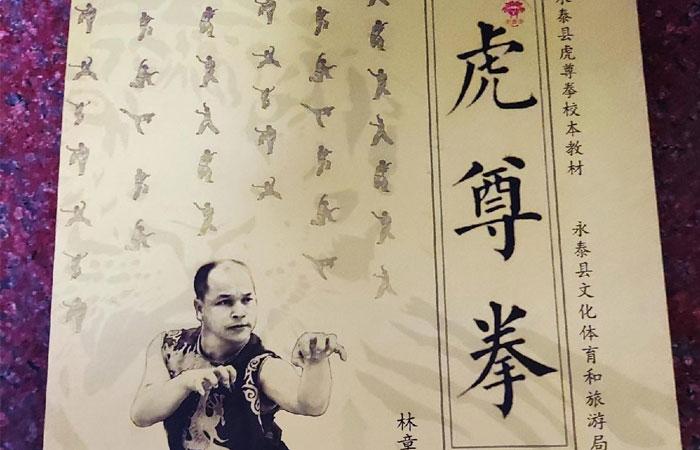 虎尊拳
永泰县虎尊拳校本教材
永泰县文化体育和旅游局
林章